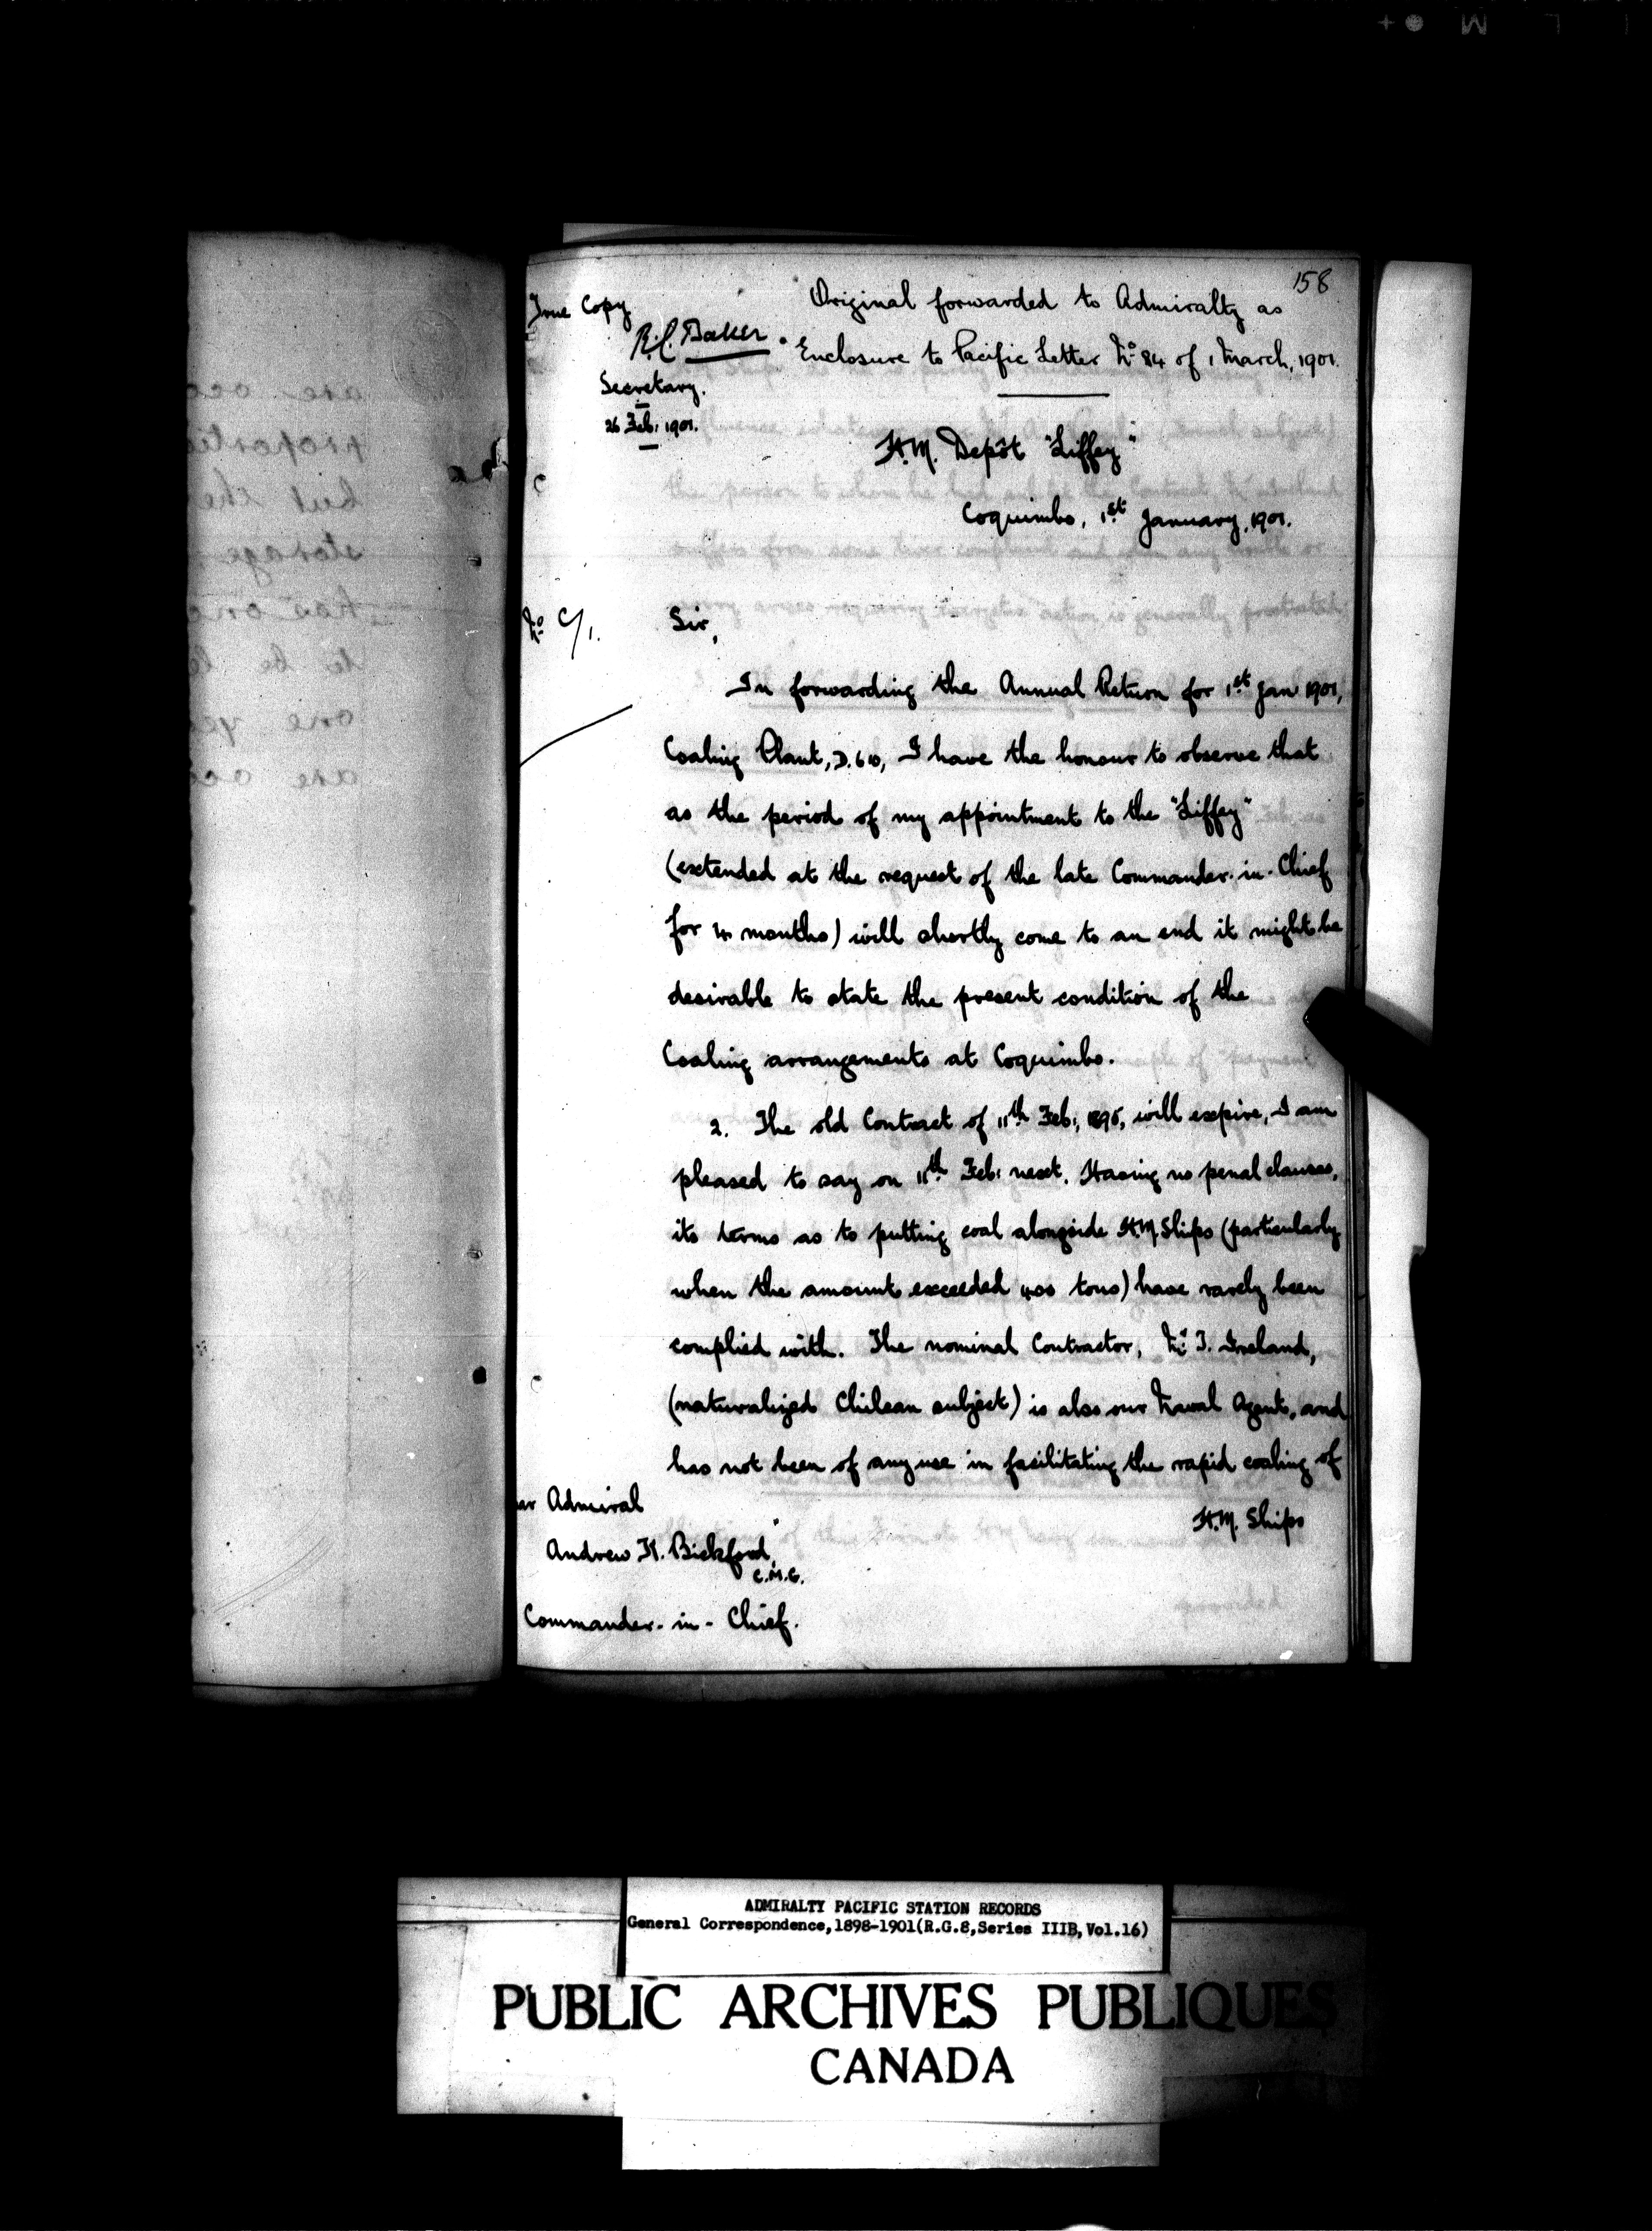 158
True Copy
R.C. Baker.
Secretary.
26 Feb: 1901.
Original forwarded to Admiralty as
Enclosure to Pacific Letter No 84 of 1 March, 1901.
H.M. Depôt "Liffey"
Coquimbo, 1st January, 1901.
No C/1.
Sir,
In forwarding the Annual Return for 1st Jan 1901,
Coaling Plant, D.610, I have the honour to observe that
as the period of my appointment to the "Liffey"
(extended at the request of the late Commander-in-Chief
for 4 months) will shortly come to an end it might be
desirable to state the present condition of the
Coaling arrangements at Coquimbo.
2. The old Contract of 11th Feb:, 1895, will expire, I am
pleased to say on 11th Feb: next. Having no penal clauses,
its terms as to putting coal alongside H.M. Ships (particularly
when the amount exceeded 400 tons) have rarely been
complied with. The nominal Contractor, Mr J. Ireland,
(naturalized Chilean subject) is also our Naval Agent, and
has not been of any use in facilitating the rapid coaling of
H.M. Ships
ar Admiral
Andrew K. Bickford,
C.M.G.
Commander-in-Chief.
ADMIRALTY PACIFIC STATION RECORDS
General Correspondence,1898-1901(R.G.8,Series IIIB,Vol.16)
PUBLIC ARCHIVES PUBLIQUES
CANADA